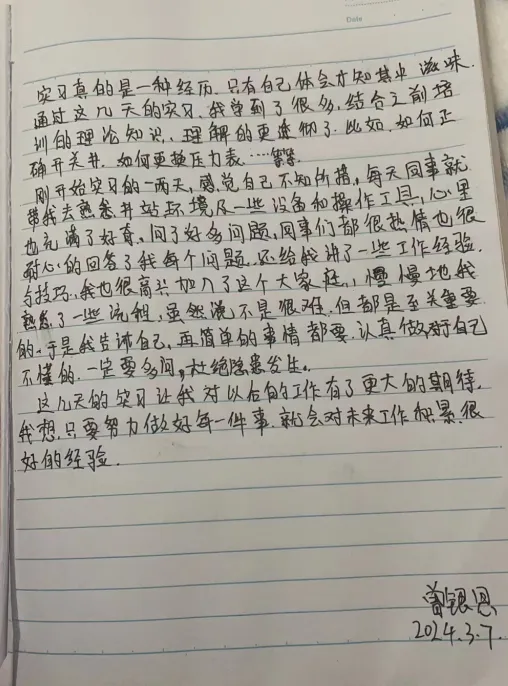 Date
实习真的是一种经历，只有自己体会才知其中滋味.
通过这几天的实习，我学到了很多，结合之前培
训的理论知识，理解的更透彻了. 比如，如何正
确开关井，如何更换压力表……等等.
刚开始实习的一两天，感觉自己不知所措，每天同事就
带我去熟悉井站环境及一些设备和操作工具，心里
也充满了好奇，问了好多问题，同事们都很热情也很
耐心的回答了我每个问题，还给我讲了一些工作经验
与技巧. 我也很高兴加入了这个大家庭，慢慢地我
熟悉了一些流程，虽然说不是很难，但都是至关重要
的. 于是我告诉自己，再简单的事情都要认真做，对于自己
不懂的，一定要多问，杜绝隐患发生.
这几天的实习让我对以后的工作有了更大的期待，
我想，只要努力做好每一件事，就会对未来工作积累很
好的经验.
银恩
2024.3.7.